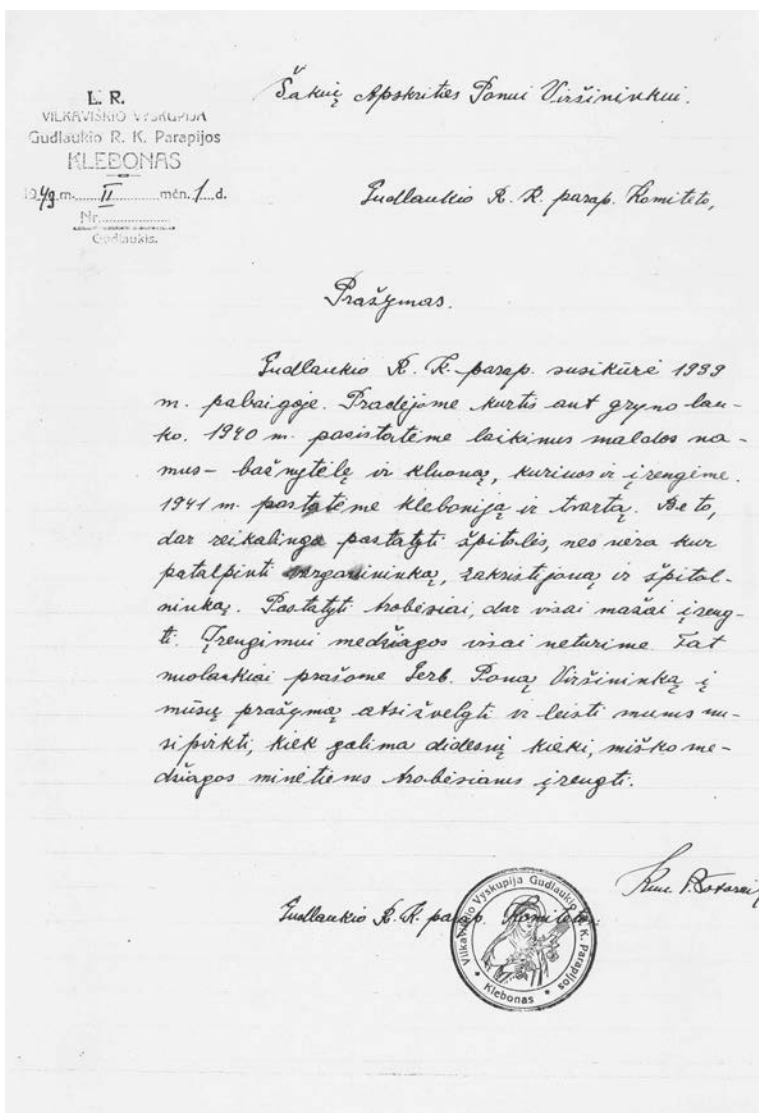 L. R.
VILKAVIŠKIO VYSKUPIJA
Gudlaukio R. K. Parapijos
KLEBONAS
m. II mėn. 1 d.
Nr.
Gudlaukis.
Šakių Apskrities Ponui Viršininkui.
Gudlaukio R. K. parap. Komiteto,
Prašymas.
Gudlaukio R. K. parap. susikūrė 1939
m. pabaigoje. Pradėjome kurtis ant gryno lau-
ko. 1940 m. pasistatėme laikinus maldos na-
mus – bažnytėlę ir kluoną, kuriuos ir įrengėme.
1941 m. pastatėme kleboniją ir tvartą. Be to,
dar reikalinga pastatyti špitolės, nes nėra kur
patalpinti vargonininką, zakristijoną ir špitol-
ninką. Pastatyti trobėsiai, dar visai mažai įreng-
ti. Įrengimui medžiagos visai neturime. Tat
nuolankiai prašome Gerb. Poną Viršininką į
mūsų prašymą atsižvelgti ir leisti mums nu-
sipirkti, kiek galima didesnį kiekį, miško me-
džiagos minėtiems trobėsiams įrengti.
Kun.
Gudlaukio R. K. parap. Komiteto:
Vilkaviškio Vyskupija Gudlaukio R. K. Parapijos
Klebonas